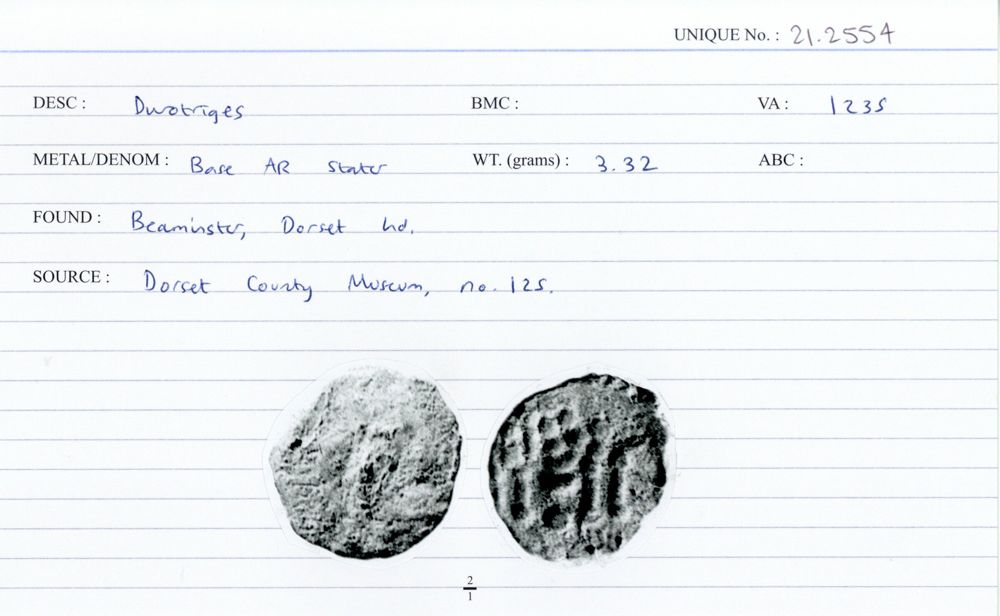 UNIQUE No. : 21.2554
DESC : Durotriges BMC : VA : 1235
METAL/DENOM : Base AR stater WT. (grams) : 3.32 ABC :
FOUND : Beaminster, Dorset hd.
SOURCE : Dorset County Museum, no. 125.
2
1